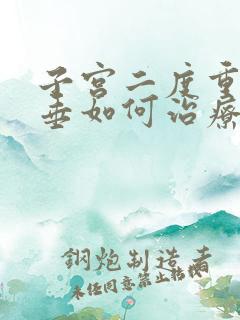 子宫二度重
垂如何治療
鋼炮制造者
未任同意禁止转载